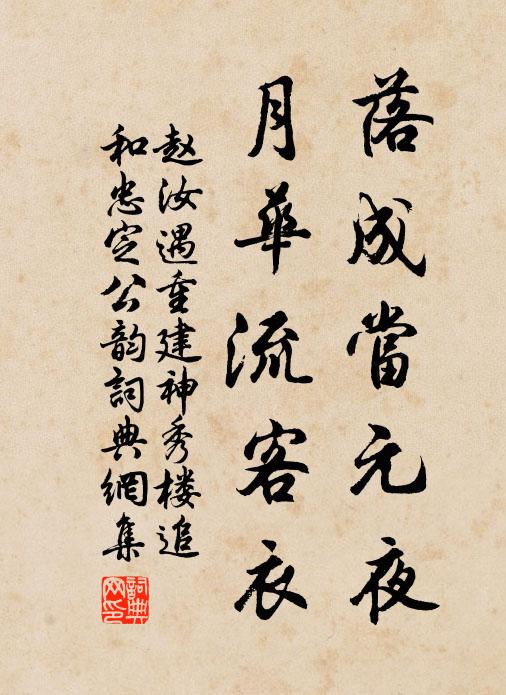 落成當元夜
月華流客衣
赵汝遇重建神秀楼追
和忠定公韵詞典網集
詞典
网印